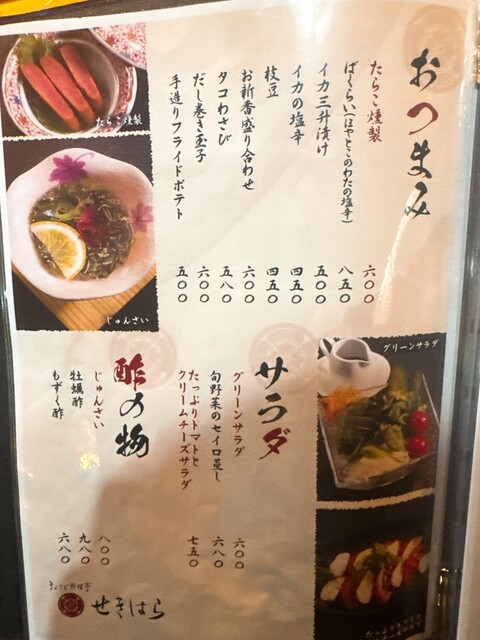 おつまみ
たらこ燻製
六〇〇
ばくらい(ほやとこのわたの塩辛)
八五〇
イカ三升漬け
五〇〇
イカの塩辛
四五〇
枝豆
四五〇
お新香盛り合わせ
六〇〇
タコわさび
五八〇
だし巻き玉子
六〇〇
手造りフライドポテト
五〇〇
たらこ燻製
じゅんさい
グリーンサラダ
サラダ
グリーンサラダ
六〇〇
旬野菜のセイロ蒸し
六八〇
たっぷりトマトと
クリームチーズサラダ
七五〇
酢の物
じゅんさい
八〇〇
牡蠣酢
九八〇
もずく酢
六八〇
せきはら